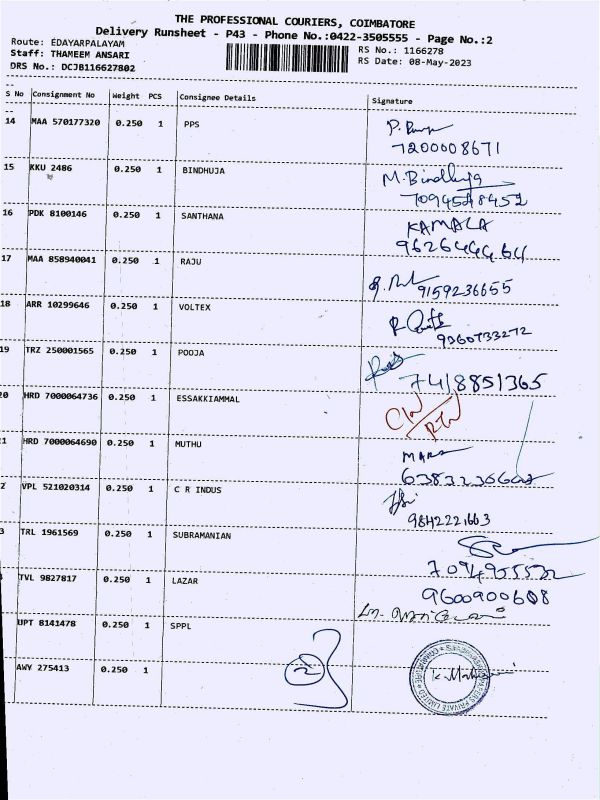 THE PROFESSIONAL COURIERS, COIMBATORE
Delivery Runsheet - P43 - Phone No.:0422-3505555 - Page No.:2
Route: EDAYARPALAYAM
Staff: THAMEEM ANSARI
DRS No.: DCJB116627802
RS No.: 1166278
RS Date: 08-May-2023
S No Consignment No Weight PCS Consignee Details Signature
14 MAA 570177320 0.250 1 PPS
7200008671
15 KKU 2486 0.250 1 BINDHUJA M.Bindhuja
7094578452
16 PDK 8100146 0.250 1 SANTHANA KAMALA
9626444464
17 MAA 858940041 0.250 1 RAJU
9159236655
18 ARR 10299646 0.250 1 VOLTEX
9360733272
19 TRZ 250001565 0.250 1 POOJA
7418851365
20 HRD 7000064736 0.250 1 ESSAKKIAMMAL
1 HRD 7000064690 0.250 1 MUTHU
2 VPL 521020314 0.250 1 C R INDUS
9842221663
3 TRL 1961569 0.250 1 SUBRAMANIAN
TVL 9827817 0.250 1 LAZAR
9600900608
UPT 8141478 0.250 1 SPPL
AWY 275413 0.250 1
2